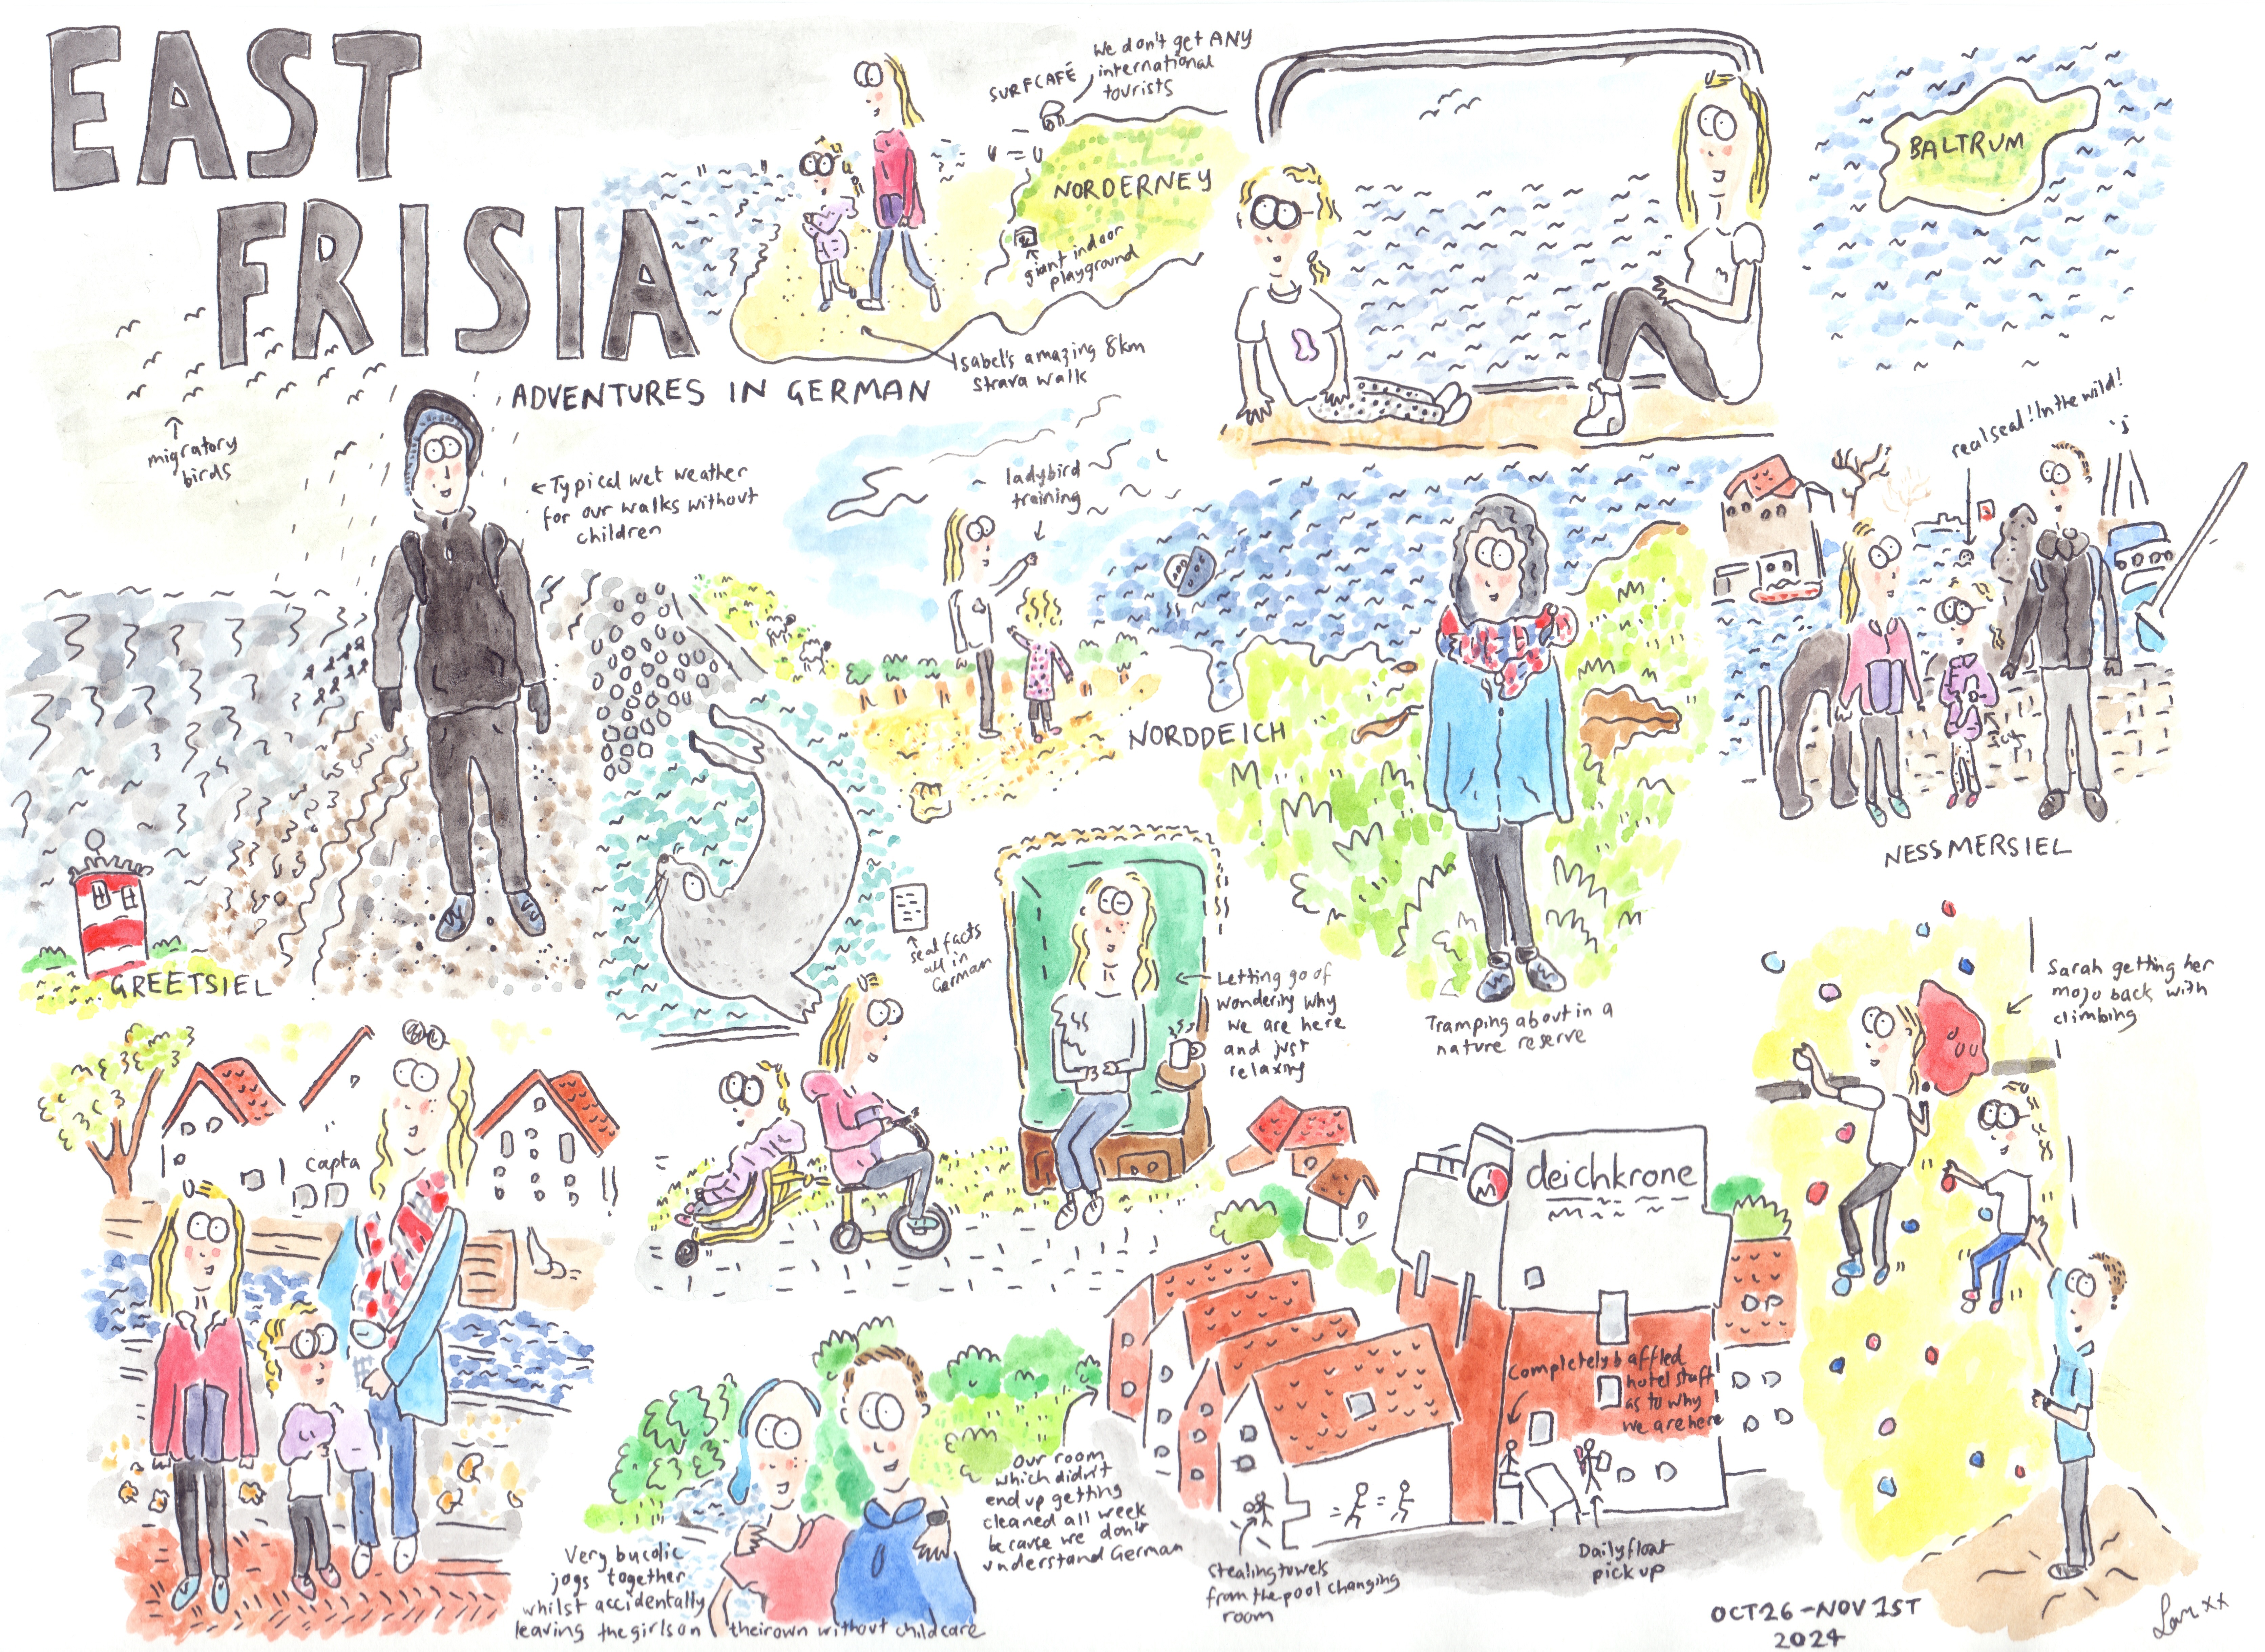 EAST
FRISIA
ADVENTURES IN GERMAN
SURFCAFÉ
We don't get ANY
international
tourists
NORDERNEY
giant indoor
playground
Isabel's amazing 8km
Strava walk
BALTRUM
migratory
birds
←Typical wet weather
for our walks without
children
ladybird
training
real seal! In the wild!
NORDDEICH
NESSMERSIEL
GREETSIEL
seal facts
all in
German
Letting go of
wondering why
we are here
and just
relaxing
Tramping about in a
nature reserve
Sarah getting her
mojo back with
climbing
capta
deichkrone
Completely baffled
hotel staff
as to why
we are here
Our room
which didn't
end up getting
cleaned all week
because we don't
understand German
Very bucolic
jogs together
whilst accidentally
leaving the girls on their own without childcare
Stealing towels
from the pool changing
room
Daily float
pick up
OCT 26-NOV 1ST
2024